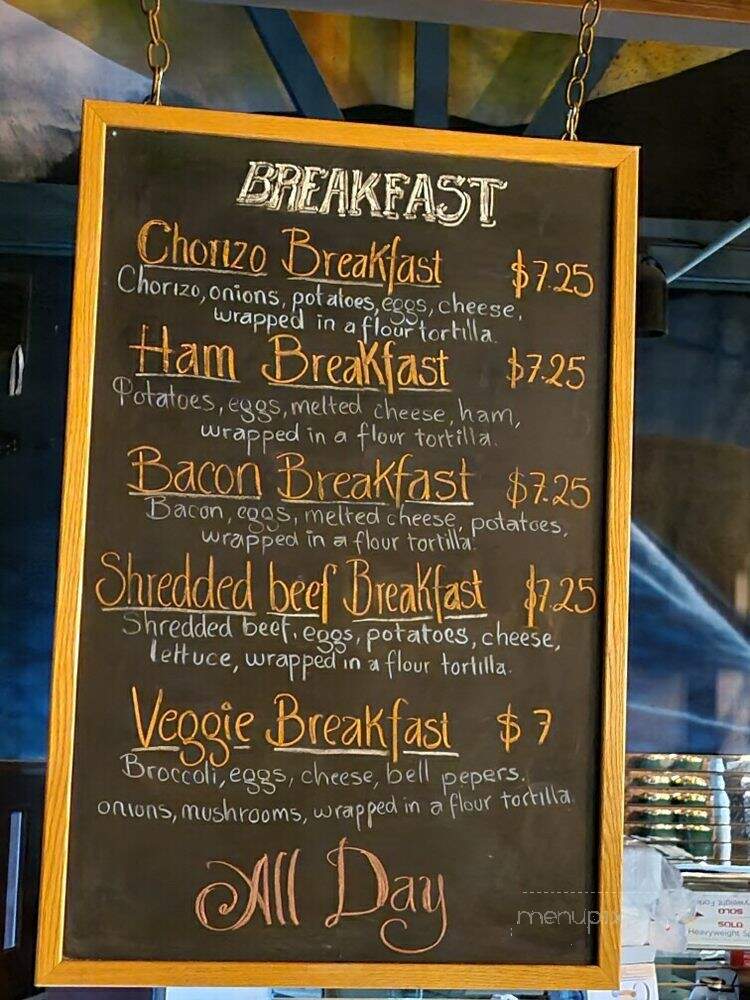 BREAKFAST
Chorizo Breakfast $7.25
Chorizo, onions, potatoes, eggs, cheese,
wrapped in a flour tortilla.
Ham Breakfast $7.25
Potatoes, eggs, melted cheese, ham,
wrapped in a flour tortilla.
Bacon Breakfast $7.25
Bacon, eggs, melted cheese, potatoes,
wrapped in a flour tortilla.
Shredded beef Breakfast $7.25
Shredded beef, eggs, potatoes, cheese,
lettuce, wrapped in a flour tortilla.
Veggie Breakfast $7
Broccoli, eggs, cheese, bell pepers.
onions, mushrooms, wrapped in a flour tortilla.
All Day
SOLO
SOLO
Heavyweight